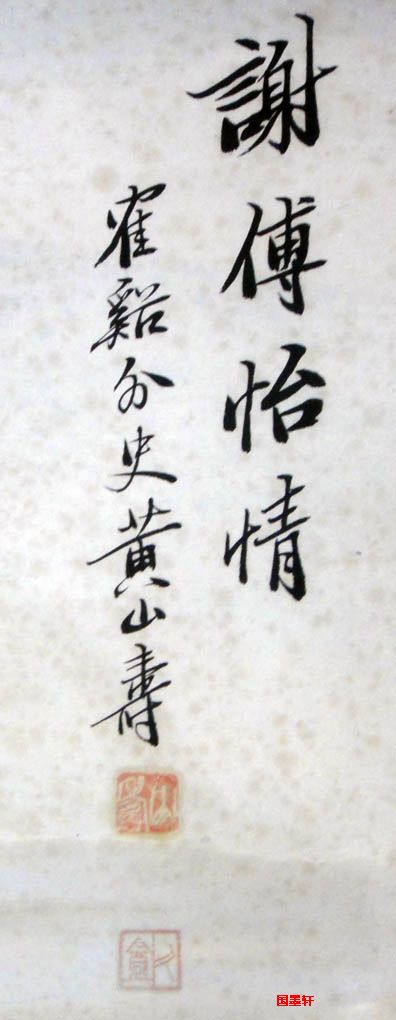 謝傅怡情
隺谿外史黃山壽
国墨轩